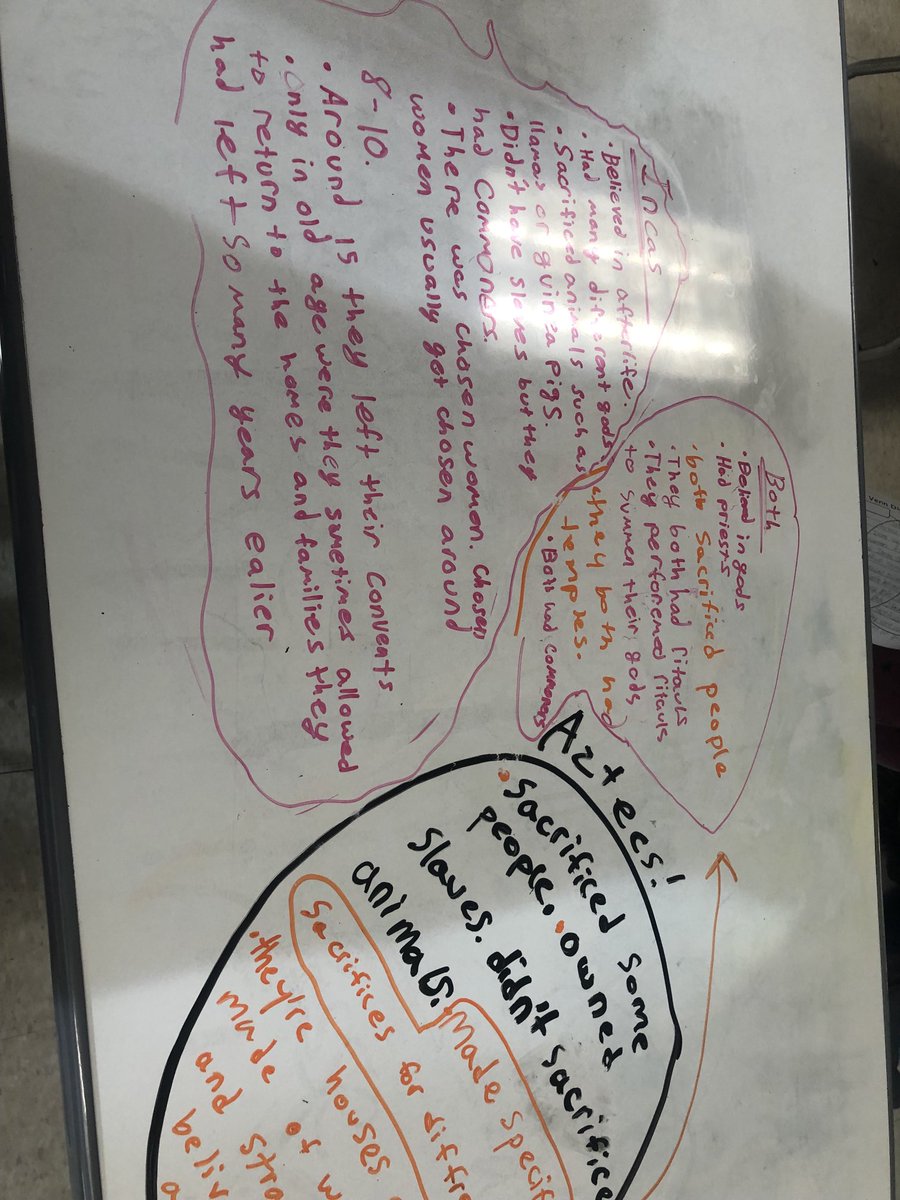 Incas
• Believed in afterlife.
• Had many diferant gods.
• Sacrificed animals such as
llamas or guinea pigs.
• Didn't have slaves but they
had commoners.
• There was chosen women. chosen
women usually get chosen around
8-10.
• Around 15 they left their convents
• Only in old age were they sometimes allowed
to return to the homes and families they
had left so many years ealier
Both
• Belived in gods
• Had priests
• both sacrificed people
• They both had ritauls
• They performed ritauls
to summen their gods
• they both had
temples.
• Both commoners
Aztecs!
• Sacrificed some
people. • owned
slaves. didn't sacrifice
animals.
Made specif
sacrifices for diffre
• they're houses
made of w
and stra
beliv